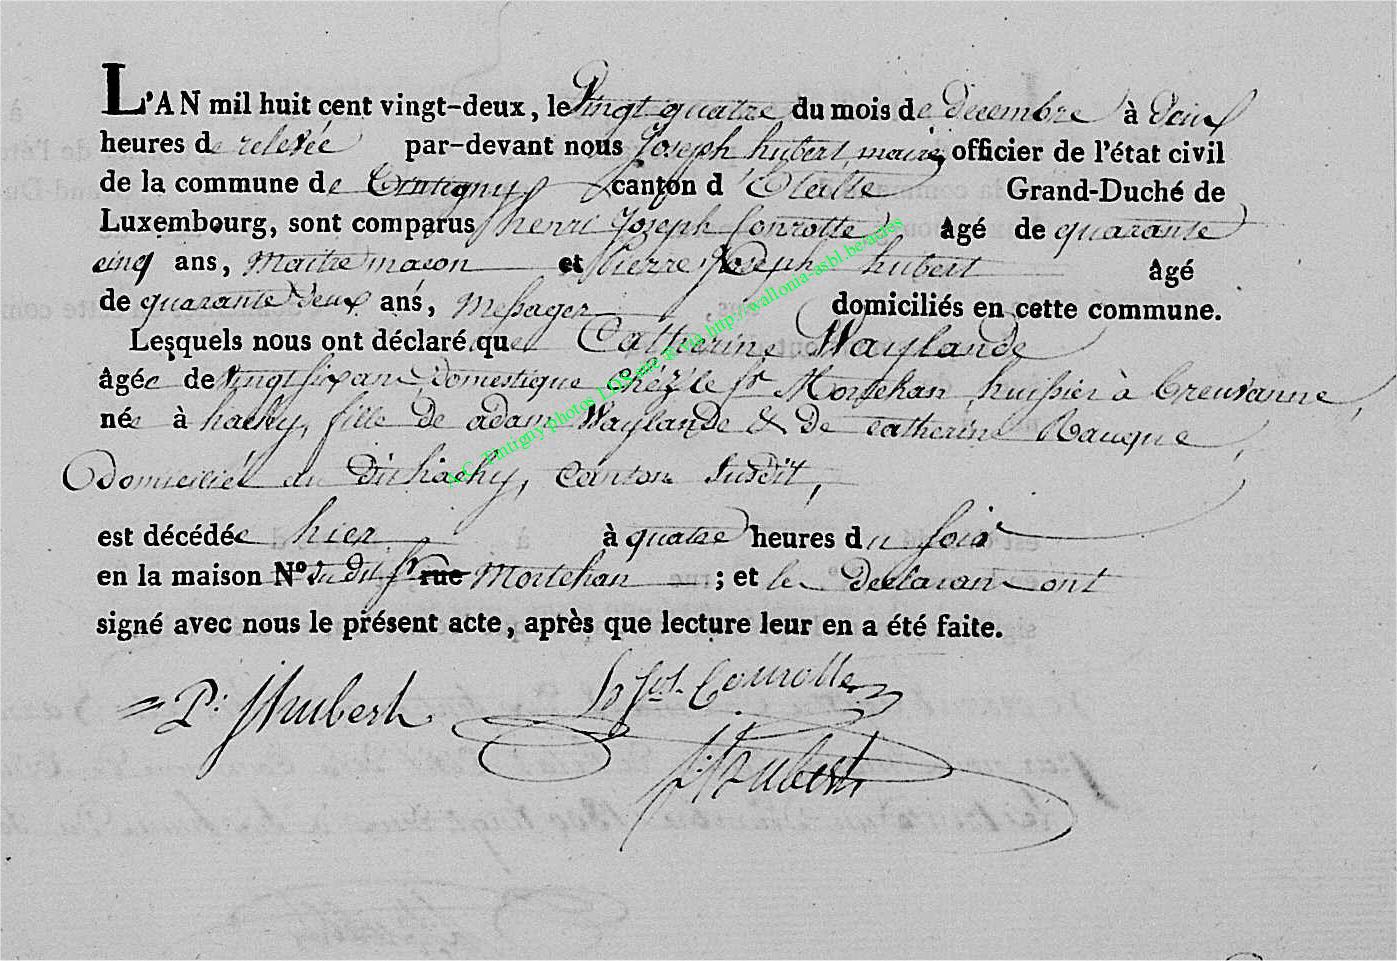 L'AN mil huit cent vingt-deux, le Vingt quatre du mois de Decembre à Deux
heures de relevée par-devant nous Joseph hubert, maire, officier de l'état civil
de la commune de Tintigny canton d'Etalle Grand-Duché de
Luxembourg, sont comparus henri Joseph Conrotte âgé de quarante
cinq ans, Maitre macon et Pierre Joseph hubert âgé
de quarante Deux ans, Messager domiciliés en cette commune.
Lesquels nous ont déclaré que Catherine Waylande
âgée de Vingt six ans Domestique chéz le Sr Mortehan huissier à Breuvanne,
née à hachy, fille de adam Waylande & de Catherine Rauque
Domiciliés au Dit hachy, canton susdit,
est décédée hier à quatre heures du soir
en la maison N° du dit Sr rue Mortehan ; et les Declarans ont
signé avec nous le présent acte, après que lecture leur en a été faite.
P: J hubert h Jph Conrotte
J: hubert
A.C. Tintigny photos LDS mise à via http://wallonia-asbl.be/actes